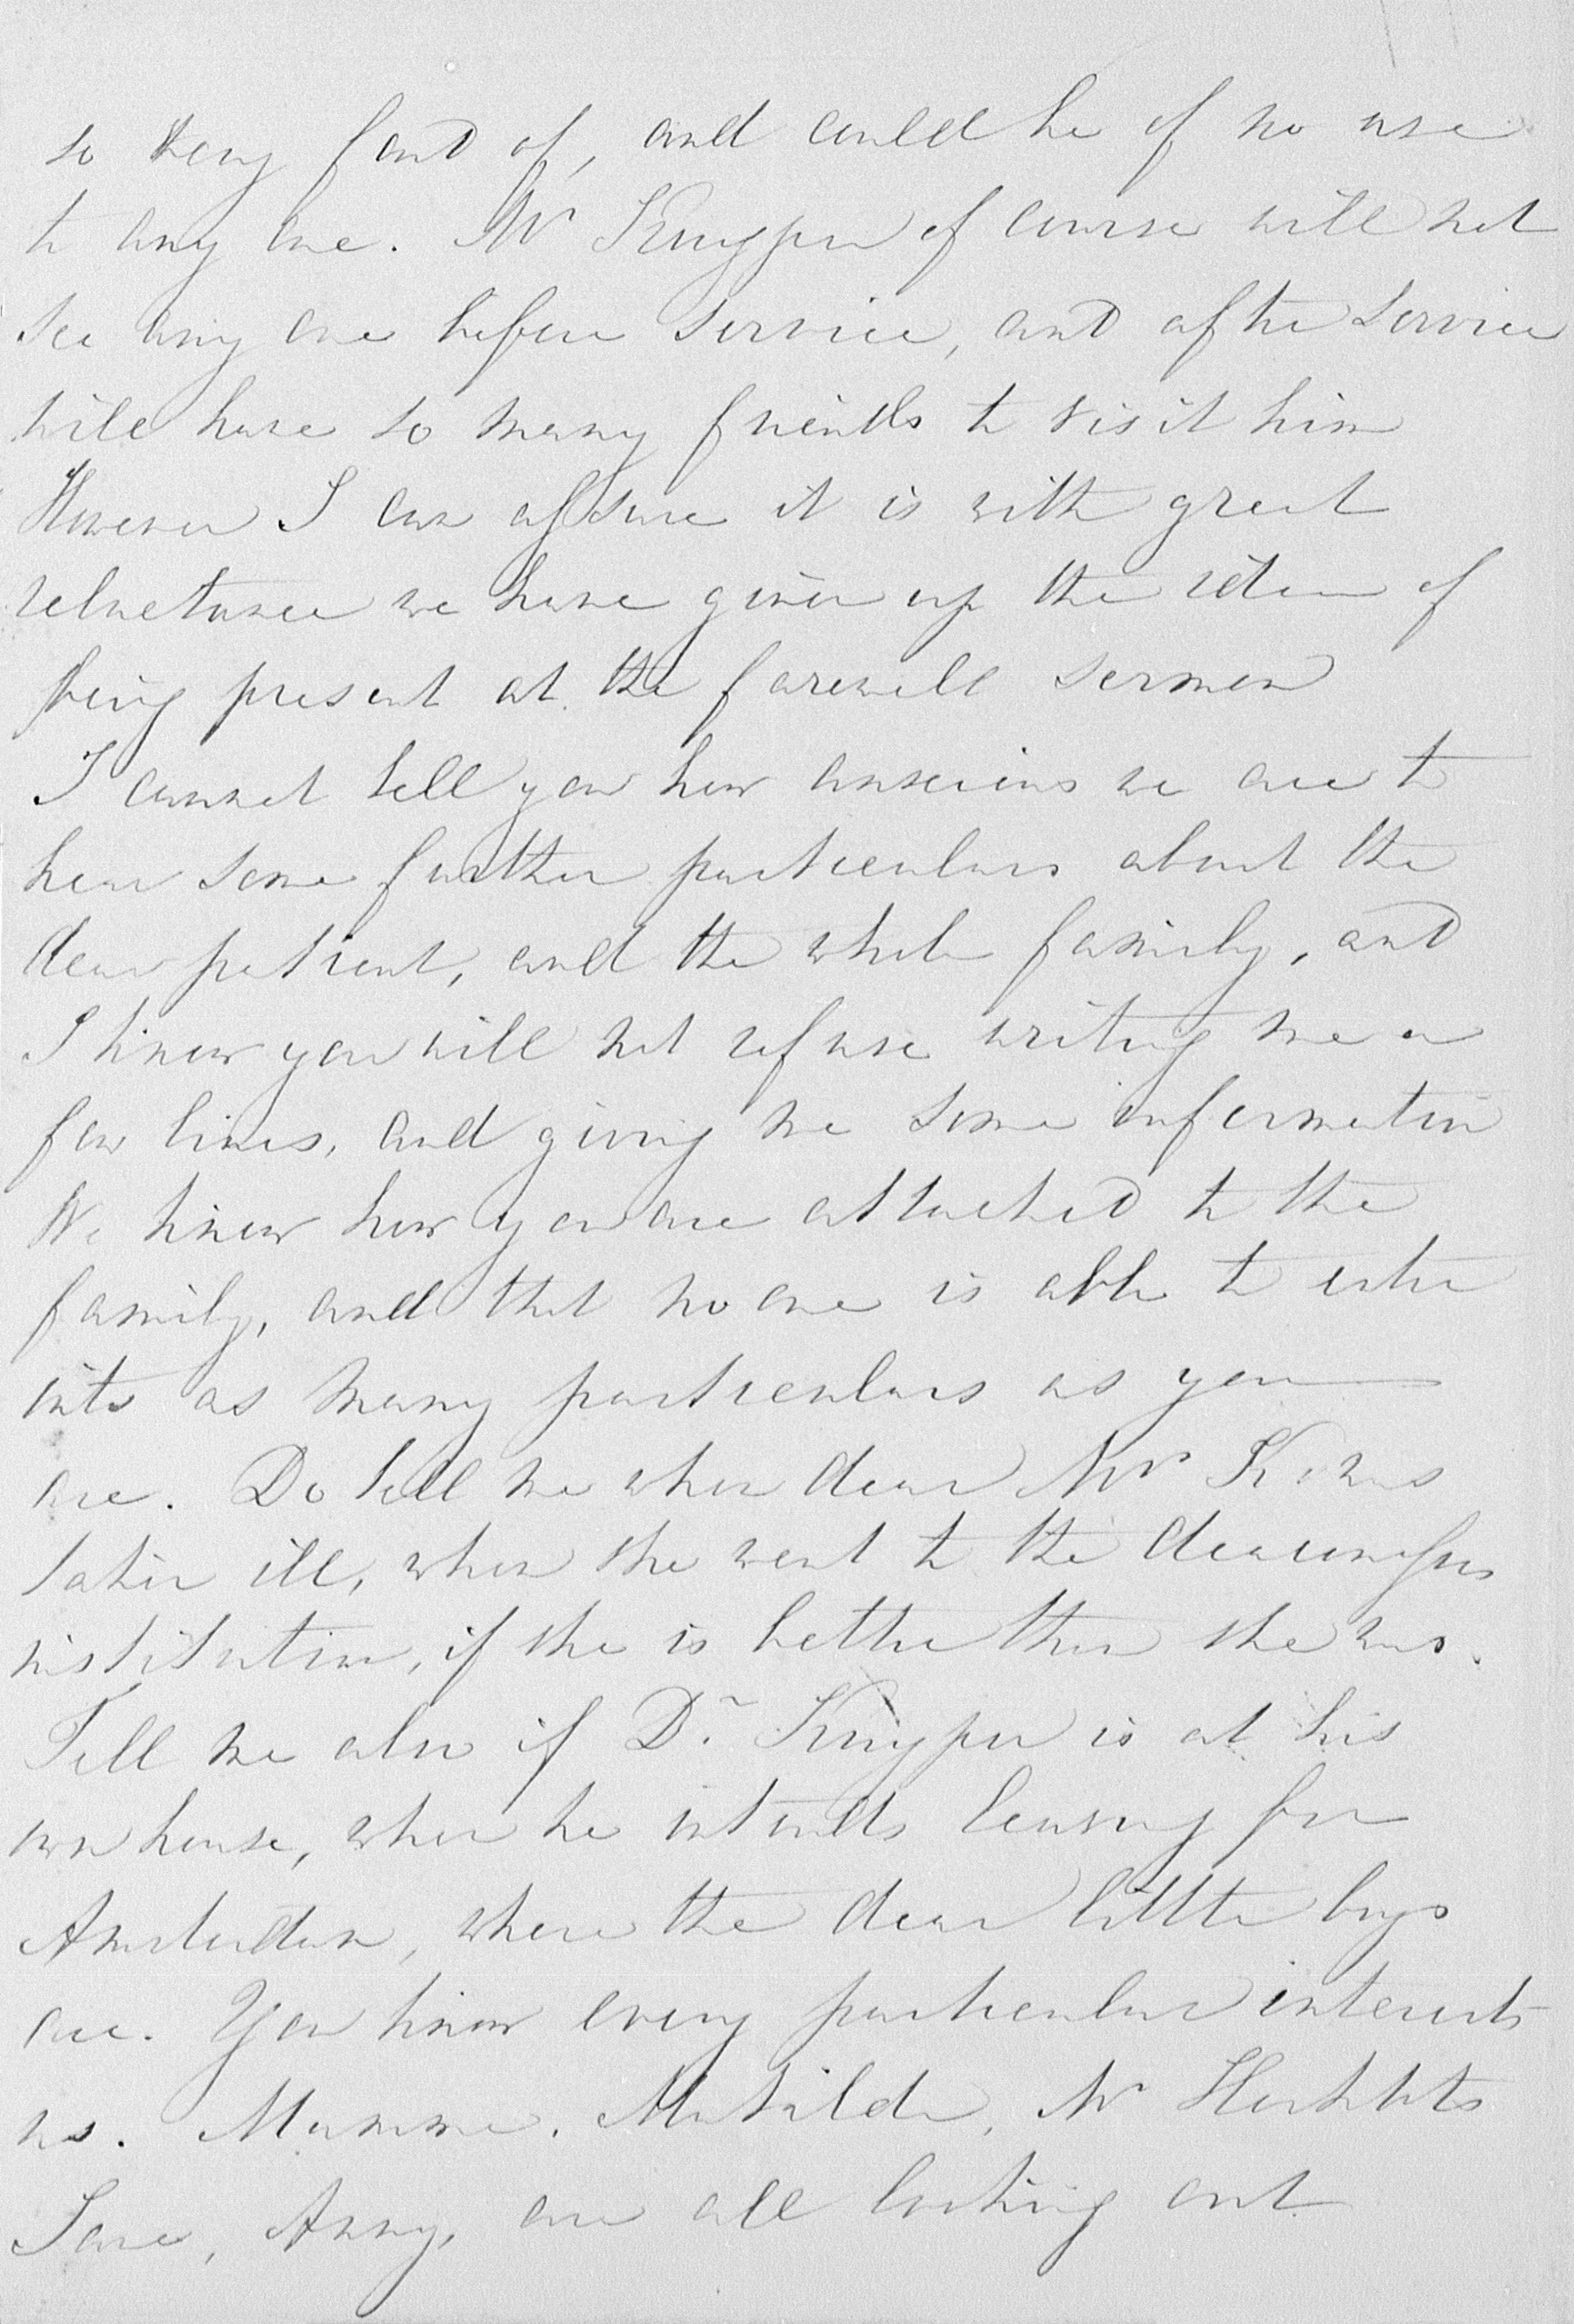 so very fond of, and could be of no use
to any one. Mr Kuyper of course will not
see any one before service, and after service
will have so many friends to visit him
However I can assure it is with great
reluctance we have given up the idea of
being present at the farewell sermon
I cannot tell you how anxious we are to
hear some further particulars about the
dear patient, and the whole family, and
I know you will not refuse writing me a
few lines, and giving me some information
We know how you are attached to the
family, and that no one is able to enter
into as many particulars as you
are. Do tell me when dear Mrs K. was
taken ill, when she went to the deaconesses
institution, if she is better than she was.
Tell me also if Dr. Kuyper is at his
own house, when he intends leaving for
Amsterdam, where the dear little boys
are. You know every particular interests
us. Mamma, Matilda, Mr
Jane, Anny, are all looking out